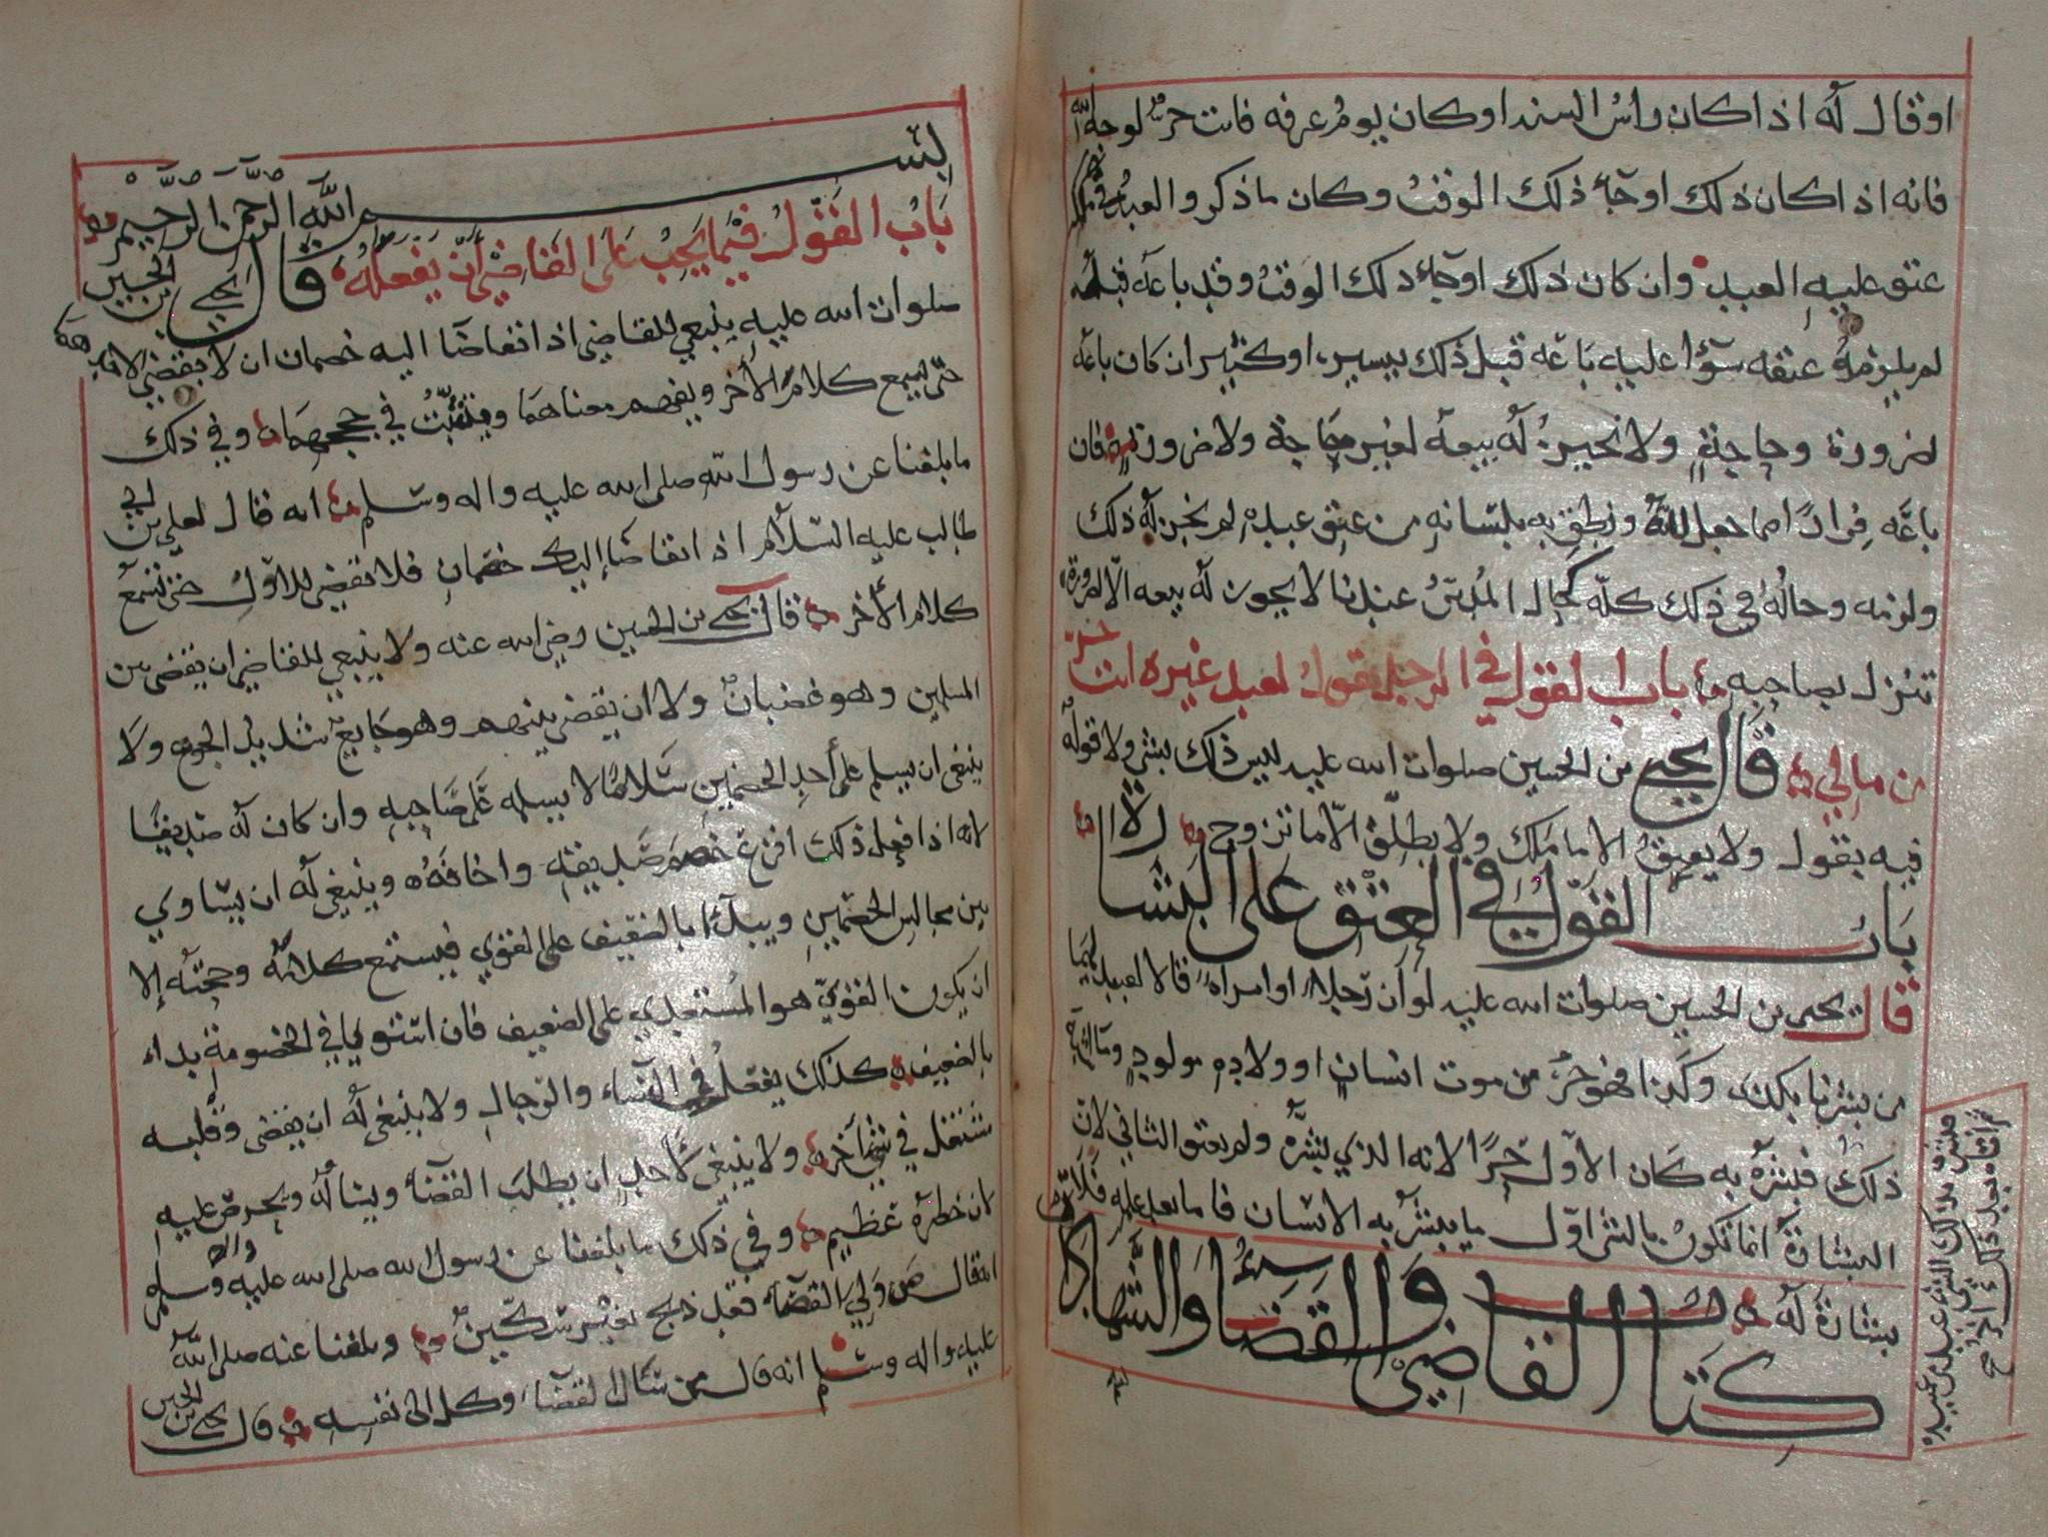 او قال له اذا كان راس السنه او كان يوم عرفه فانت حر لوجه الله
فانه اذا كان ذلك او جآء ذلك الوقت وكان ما ذكر والعبد في ملكه
عتق عليه العبد وان كان ذلك او جآء ذلك الوقت وقد باعه قبله
لم يلزمه عتقه سوآا عليه باعه قبل ذلك بيسير او كثير ان كان باعه
لضرورة وحاجة ولا نجيز له بيعه لغير حاجة ولا ضرورة فان
باعه فرارًا مما جعل لله ونطق به بلسانه من عتق عبده لم يجز له ذلك
ولزمه وحاله في ذلك كله كحال المدبر عندنا لا يجوز له بيعه الا لضرورة
تنزل بصاحبه باب القول في الرجل يقول لعبد غيره انت حر
من مالي قال يحيى بن الحسين صلوات الله عليه ليس ذلك بشي ولا قوله
فيه بقول ولا يعتق الا ما ملك ولا يطلق الا ما تزوج
باب القول في العتق على البشارة
قال يحيى بن الحسين صلوات الله عليه لو ان رجلا او امراة قالا لعبيدهما
من بشرنا بكذى وكذا فهو حر من موت انسان او ولادة مولود
ذلك فبشره به كان الاول حرًا لانه الذي بشره ولم يعتق الثاني لان
البشارة انما تكون بالشي اول ما يبشر به الانسان فاما بعد علمه فلا
بشارة له
كتاب القاضي والقضاء والشهادة
بسم الله الرحمن الرحيم
باب القول فيما يجب على القاضي ان يفعله قال يحيى بن الحسين
صلوات الله عليه ينبغي للقاضي اذا تقاضا اليه خصمان ان لا يقضي لاحدهما
حتى يسمع كلام الآخر ويفهم معناهما ويتثبت في حججهما وفي ذلك
ما بلغنا عن رسول الله صلى الله عليه واله وسلم انه قال لعلي بن ابي
طالب عليه السلام اذا تقاضا اليك خصمان فلا تقضي للاول حتى تسمع
كلام الأخر قال يحيى بن الحسين رضي الله عنه ولا ينبغي للقاضي ان يقضي بين
المسلمين وهو غضبان ولا ان يقضي بينهم وهو جايع شديد الجوع ولا
ينبغي ان يسلم على أحد الخصمين سلامًا لا يسلمه على صاحبه وان كان له صديقًا
لانه اذا فعل ذلك افزع خصم صديقه واخافه وينبغي له ان يساوي
بين مجالس الخصمين ويبدأ بالضعيف على القوي فيستمع كلامه وحجته إلا
ان يكون القوي هو المستعدي على الضعيف فان استوي في الخصومة بداء
بالضعيف كذلك يفعل في النساء والرجال ولا ينبغي له ان يقضى وقلبه
مشتغل في شي آخر ولا ينبغي لأحد ان يطلب القضآء ويسأله ويحرص عليه
لان خطره عظيم وفي ذلك ما بلغنا عن رسول الله صلى الله عليه واله وسلم
انه قال من ولي القضآء فقد ذبح بغير سكين وبلغنا عنه صلى الله
عليه واله وسلم انه قال من سال القضآء وكل الى نفسه قال يحيى بن الحسين